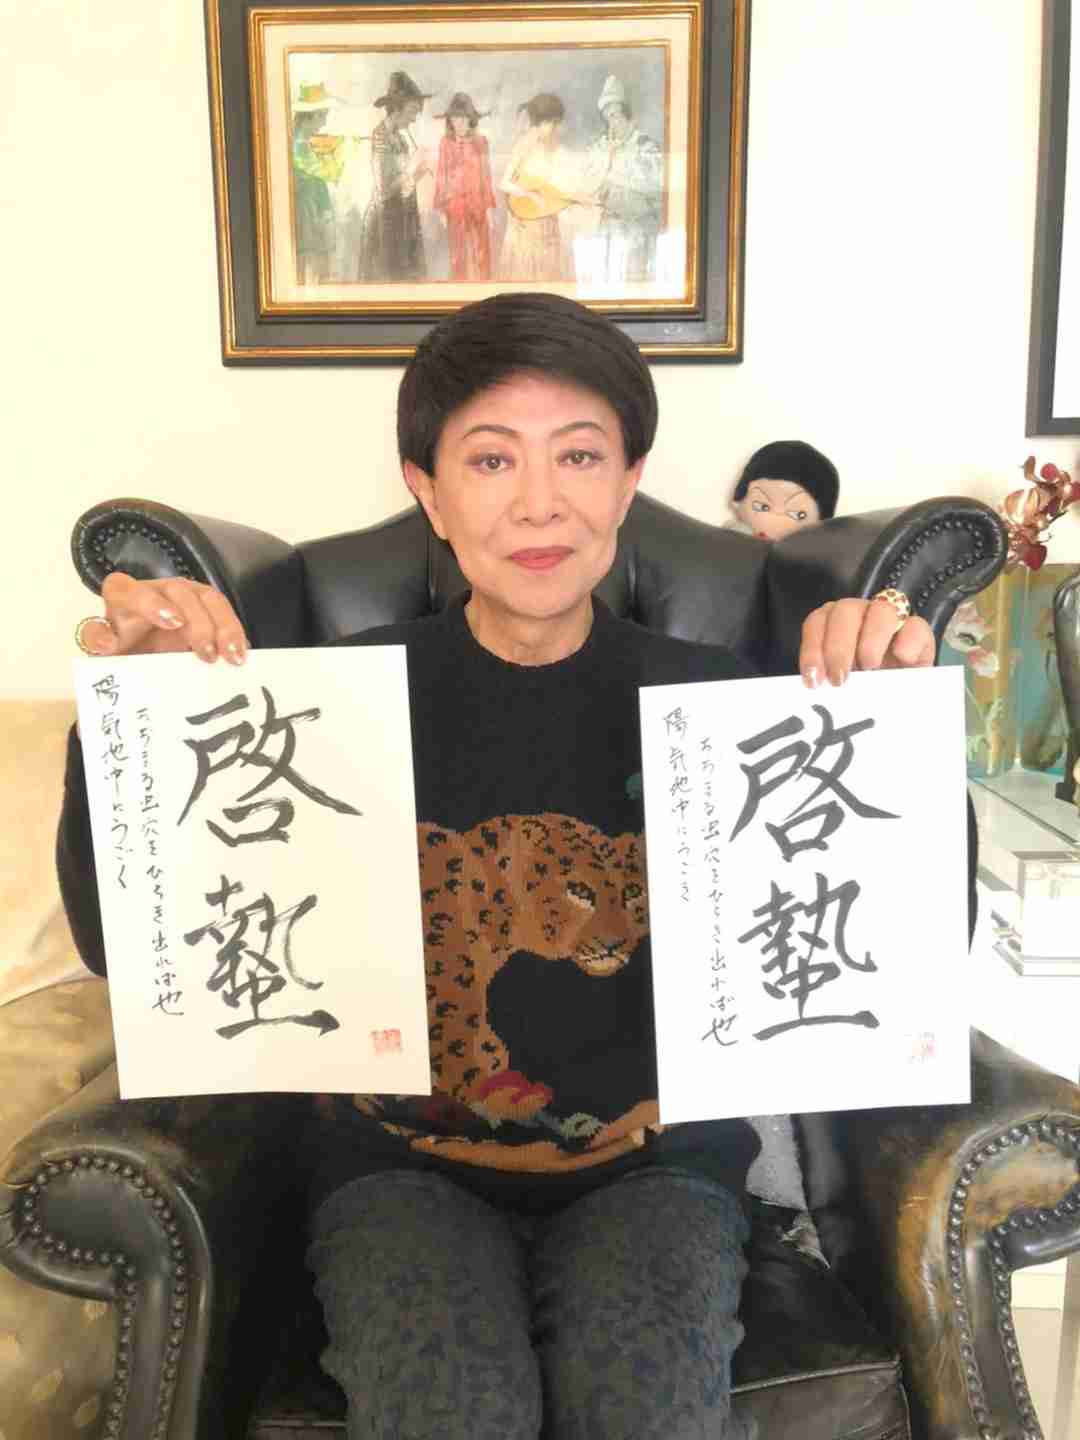 啓蟄
陽気地中にうごく
ちぢまる虫穴をひらき出れば也
啓蟄
陽気地中にうごく
ちぢまる虫穴をひらき出れば也